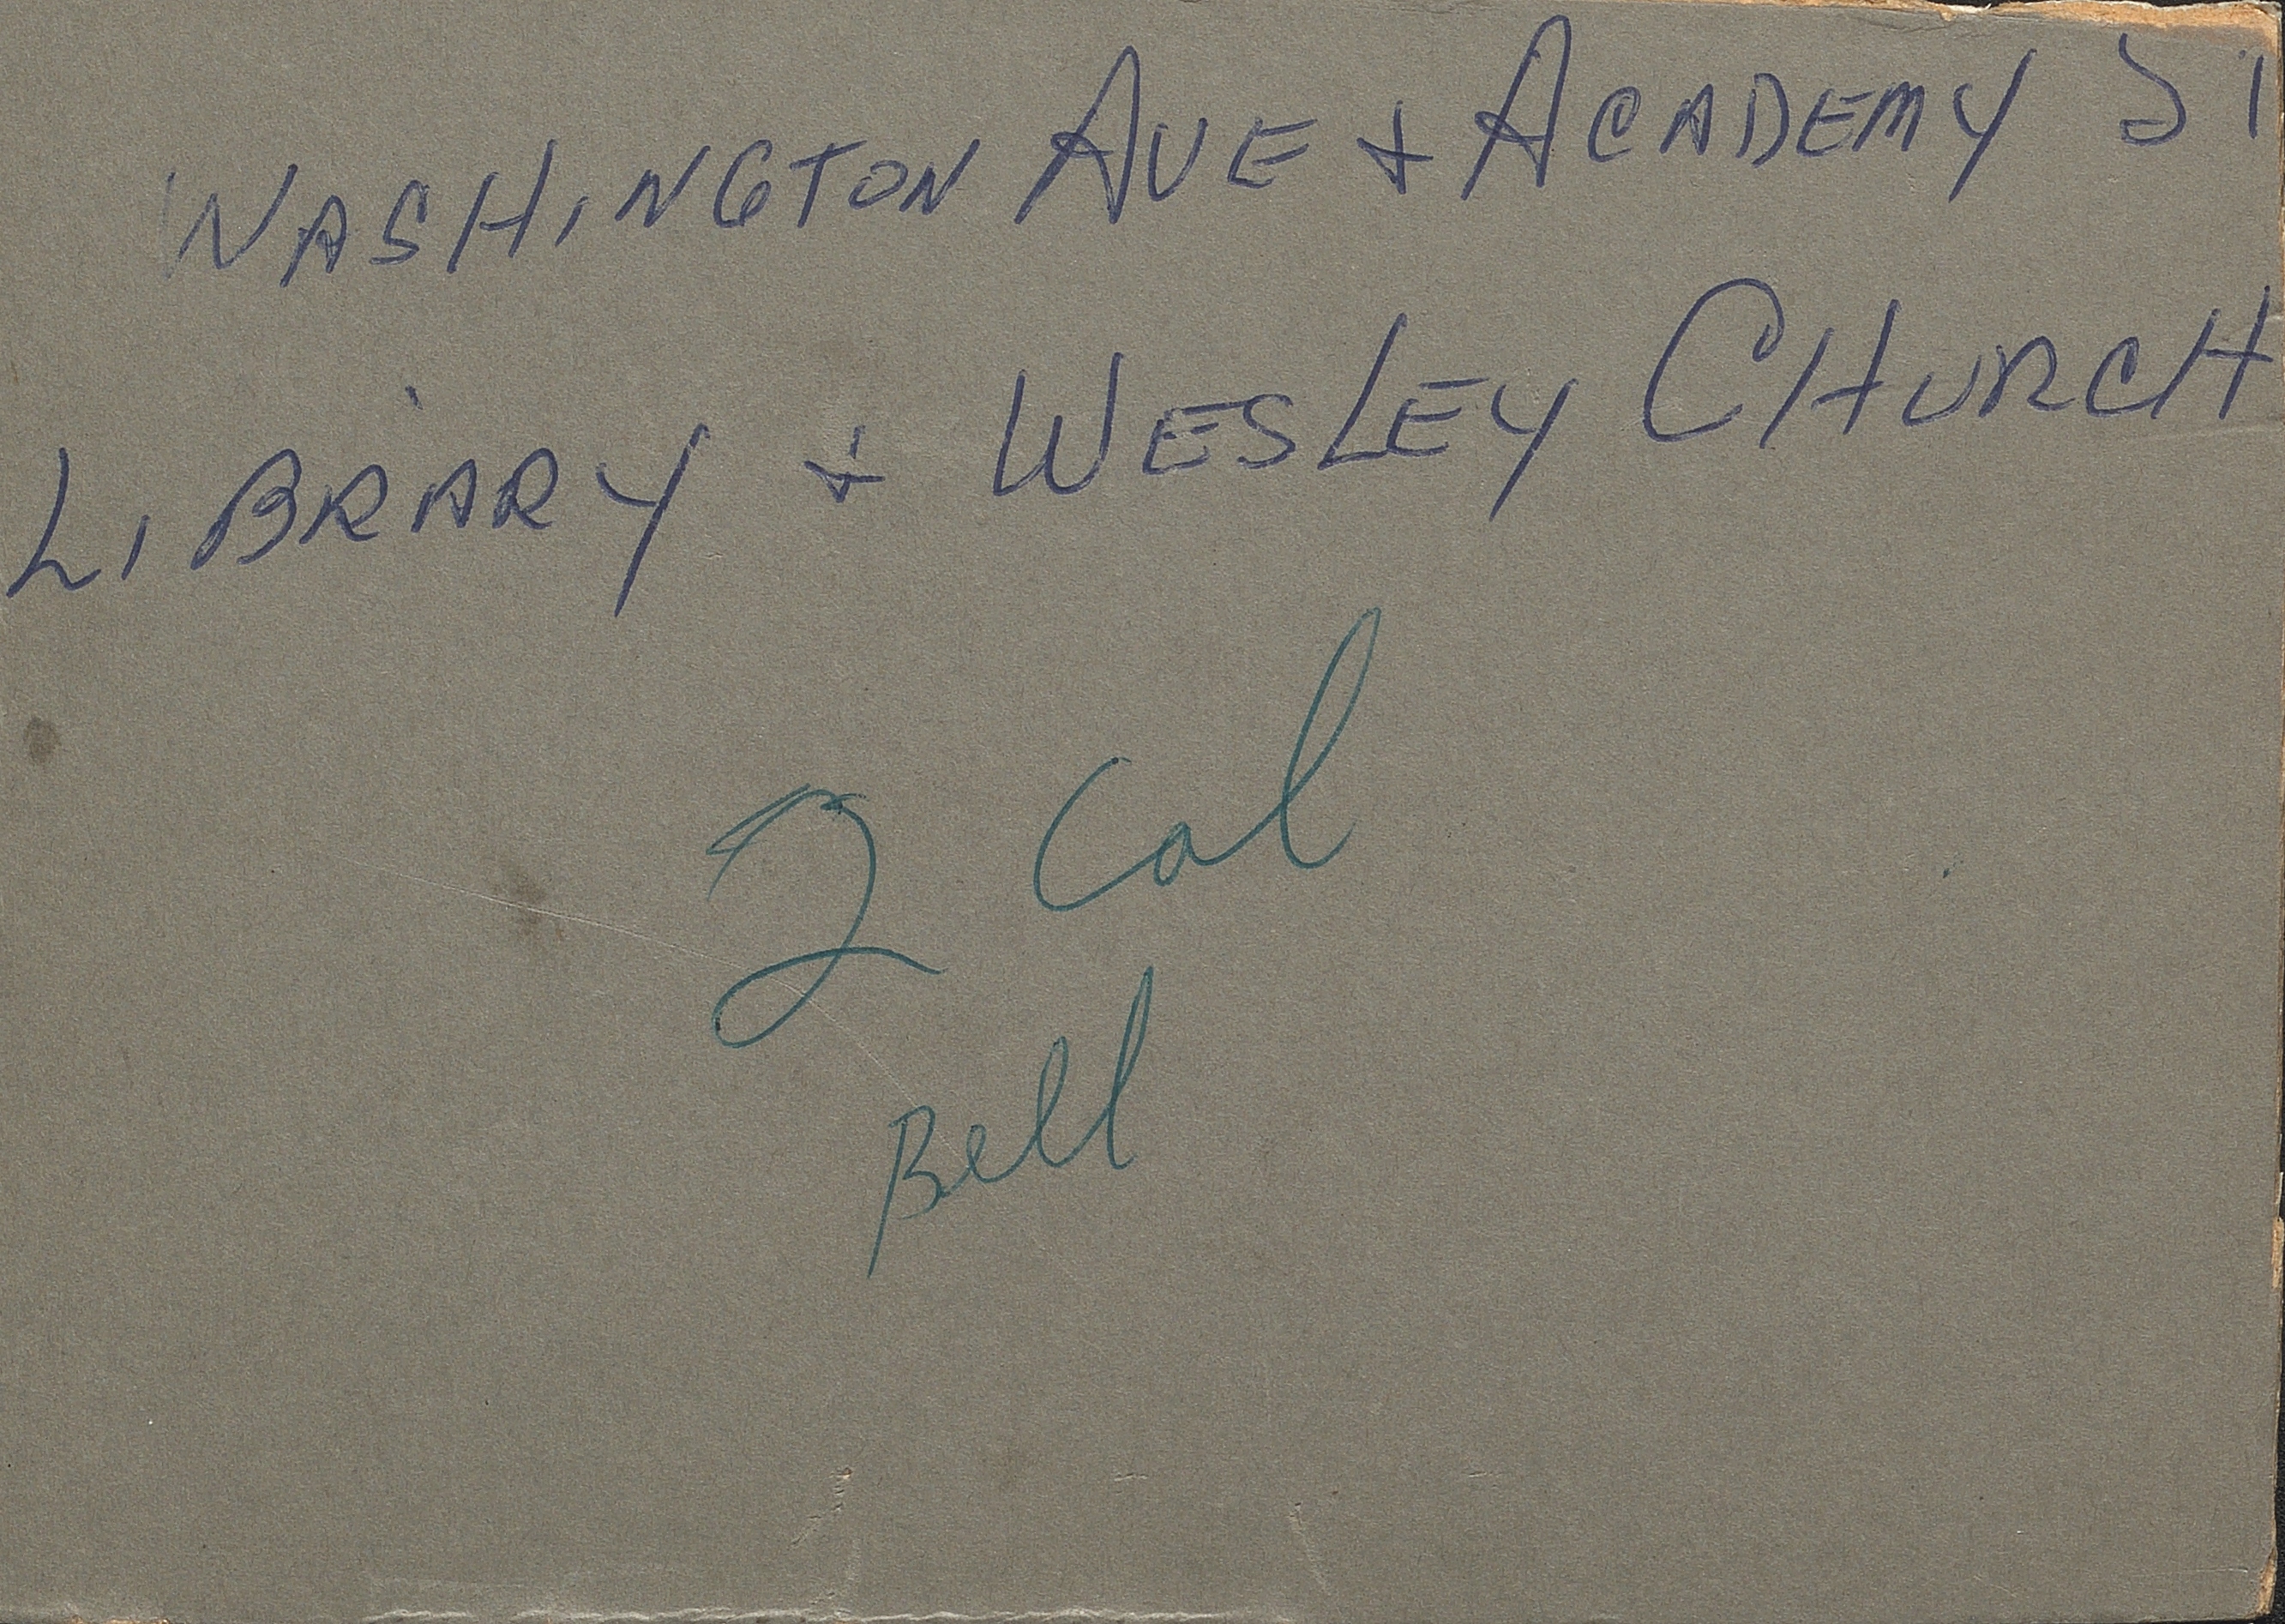 WASHINGTON AVE + ACADEMY ST
LIBRARY + WESLEY CHURCH
2 Col
Bell